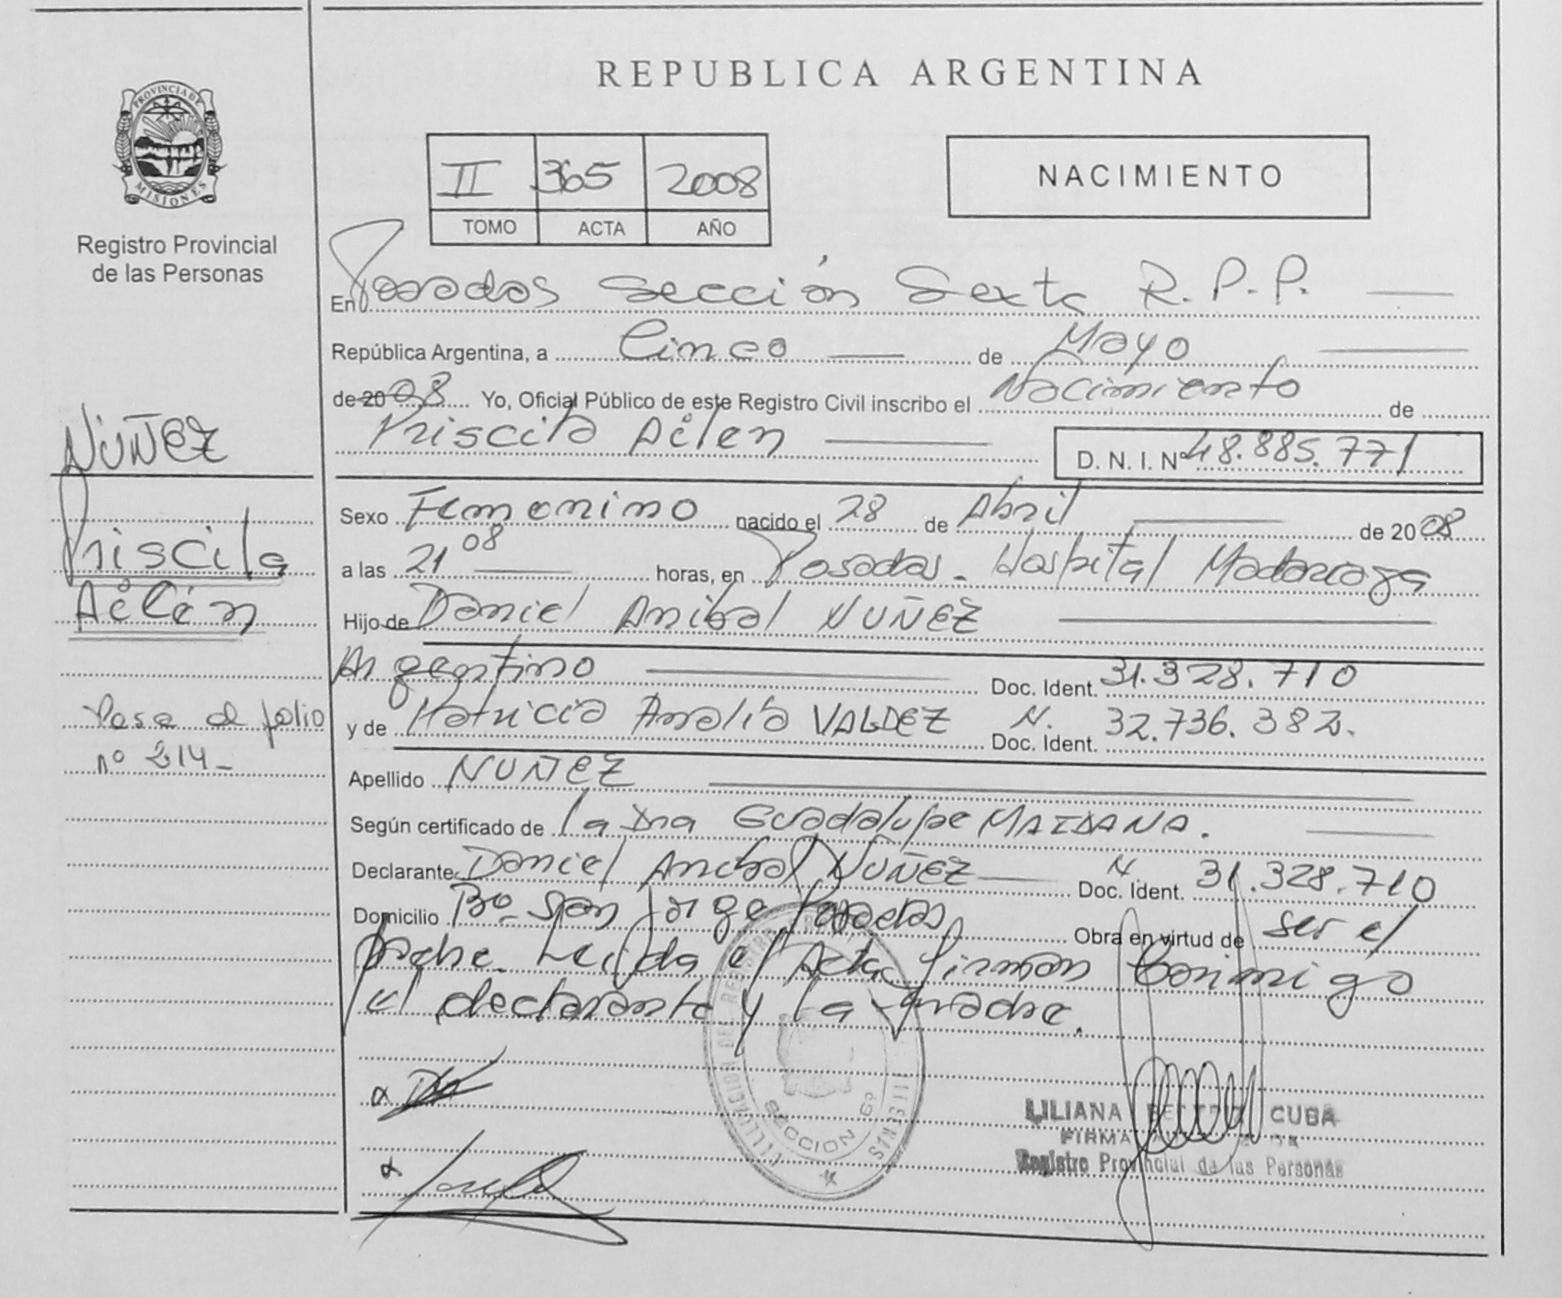 REPUBLICA ARGENTINA
PROVINCIA DE
MISIONES
Registro Provincial
de las Personas
II 365 2008
TOMO ACTA AÑO
NACIMIENTO
En Posadas Sección Sexta R.P.P.
República Argentina, a Cinco de Mayo
de 2008 Yo, Oficial Público de este Registro Civil inscribo el Nacimiento de
Priscila Ailen D. N. I. Nº 48.885.771
NUÑEZ
Priscila
Ailén
Pasa al folio
nº 214-
Sexo Femenino nacido el 28 de Abril de 2008
a las 21 08 horas, en Posadas. Hospital Madariaga
Hijo de Daniel Anibal NUÑEZ
Argentino Doc. Ident. 31.328.710
y de Patricia Analia VALDEZ Doc. Ident. N. 32.736.382.
Apellido NUÑEZ
Según certificado de la Dra Guadalupe MAIDANA.
Declarante Daniel Anibal NUÑEZ Doc. Ident. N. 31.328.710
Domicilio Bº San Jorge Posadas Obra en virtud de ser el
padre. Leida el Acta, firman Conmigo
el declarante y la madre.
SECCION 6º
LILIANA CUBA
FIRMA
Registro Provincial de las Personas